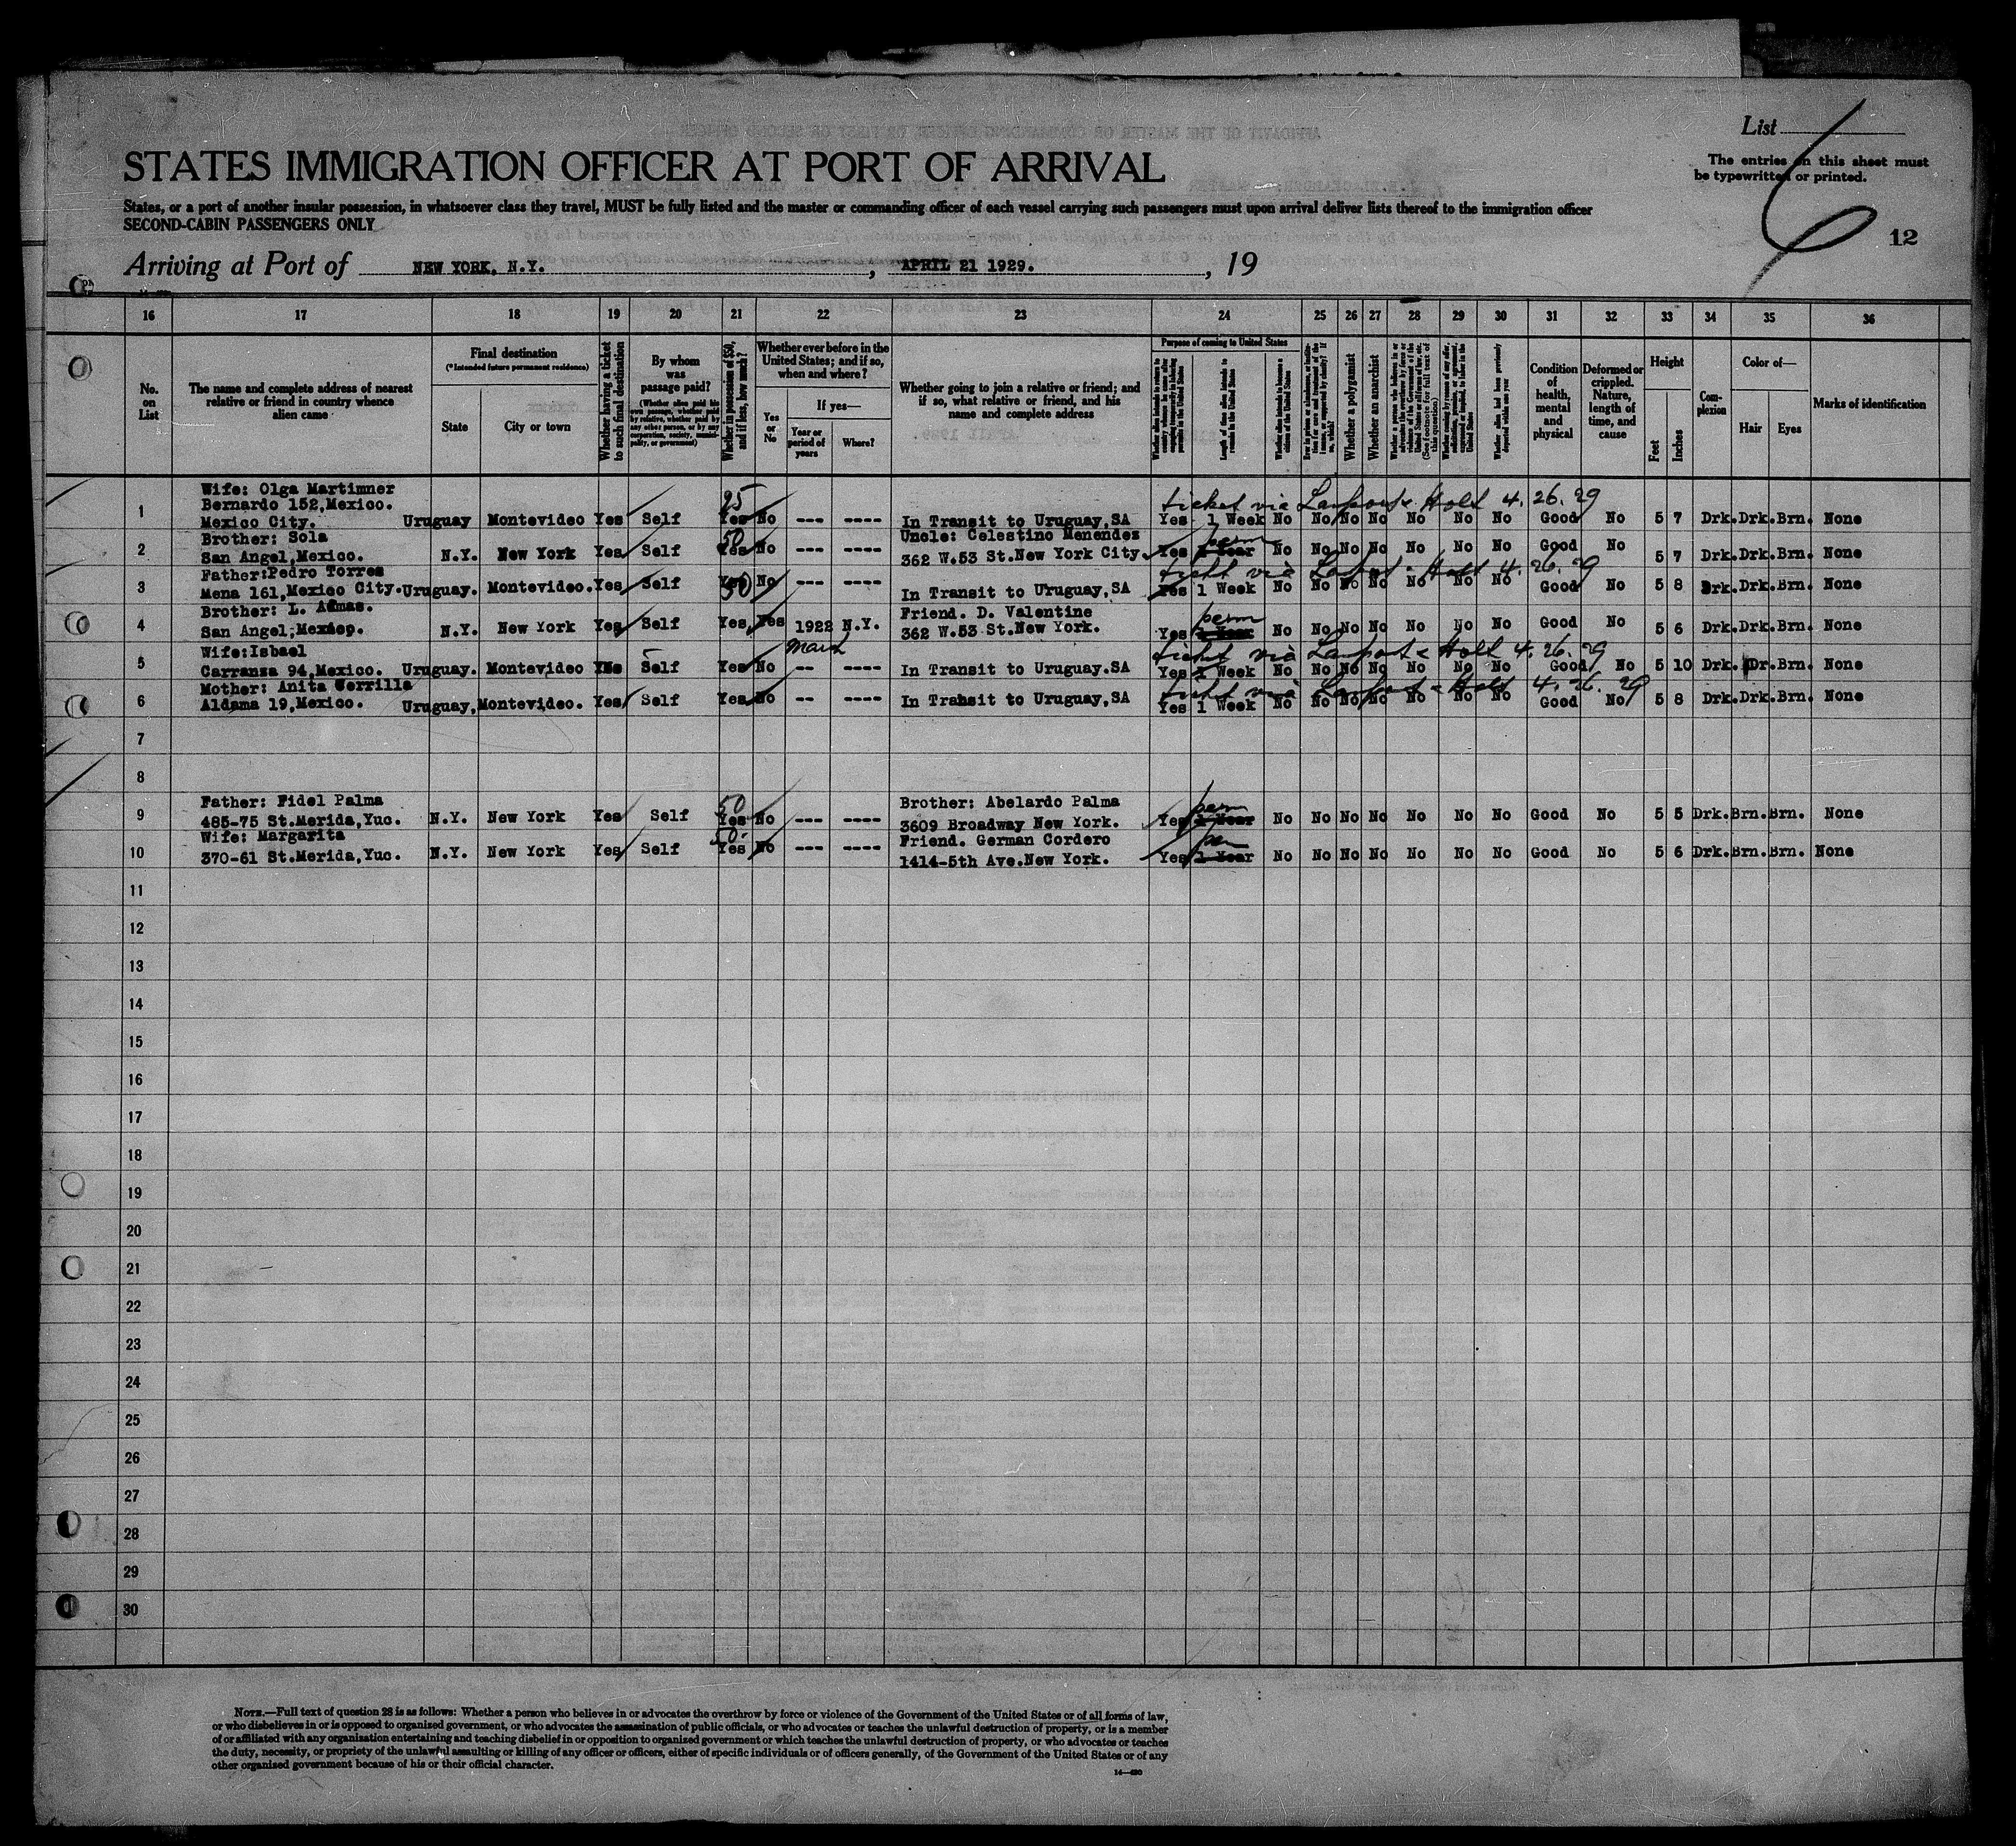 List
The entries on this sheet must
be typewritten or printed.
STATES IMMIGRATION OFFICER AT PORT OF ARRIVAL
States, or a port of another insular possession, in whatsoever class they travel, MUST be fully listed and the master or commanding officer of each vessel carrying such passengers must upon arrival deliver lists thereof to the immigration officer
SECOND-CABIN PASSENGERS ONLY
6
12
Arriving at Port of NEW YORK, N.Y. , APRIL 21 1929. , 19
16 17 18 19 20 21 22 23 24 25 26 27 28 29 30 31 32 33 34 35 36
No. on List
The name and complete address of nearest relative or friend in country whence alien came
Final destination
(*Intended future permanent residence)
State
City or town
Whether having a ticket to such final destination
By whom was passage paid?
(Whether alien paid his own passage, whether paid by relative, whether paid by any other person, or by any corporation, society, municipality, or government)
Whether in possession of $50, and if less, how much?
Whether ever before in the United States; and if so, when and where?
Yes or No
If yes—
Year or period of years
Where?
Whether going to join a relative or friend; and if so, what relative or friend, and his name and complete address
Purpose of coming to United States
Length of time alien intends to remain in the United States
Whether alien intends to become a citizen of the United States
Whether a polygamist
Whether an anarchist
Whether alien had been previously deported within one year
Condition of health, mental and physical
Deformed or crippled. Nature, length of time, and cause
Height
Feet
Inches
Complexion
Color of—
Hair
Eyes
Marks of identification
ticket via Lamport & Holt 4.26.29
1 Wife: Olga Martinner
Bernardo 152,Mexico.
Mexico City. Uruguay Montevideo Yes Self 25 Yes No --- ---- In Transit to Uruguay,SA Yes 1 Week No No No No No No No Good No 5 7 Drk. Drk. Brn. None
2 Brother: Sola
San Angel,Mexico. N.Y. New York Yes Self 50 Yes No --- ---- Uncle: Celestino Menendez
362 W.53 St.New York City. Yes 1 Year perm No No No No No No No Good No 5 7 Drk. Drk. Brn. None
ticket via Lamport & Holt 4.26.29
3 Father:Pedro Torres
Mena 161,Mexico City. Uruguay. Montevideo. Yes Self Yes 50 No --- ---- In Transit to Uruguay,SA Yes 1 Week No No No No No No No Good No 5 8 Drk. Drk. Brn. None
4 Brother: L. Armas.
San Angel,Mexico. N.Y. New York Yes Self Yes Yes 1922 N.Y. Friend. D. Valentine
362 W.53 St.New York. Yes 1 Year perm No No No No No No No Good No 5 6 Drk. Drk. Brn. None
March
ticket via Lamport & Holt 4.26.29
5 Wife:Isbael
Carranza 94,Mexico. Uruguay. Montevideo Yes Self Yes No -- ---- In Transit to Uruguay.SA Yes 1 Week No No No No No No No Good No 5 10 Drk. Dr. Brn. None
ticket via Lamport & Holt 4.26.29
6 Mother: Anita
Aldama 19,Mexico. Uruguay, Montevideo. Yes Self Yes No -- ---- In Transit to Uruguay,SA Yes 1 Week No No No No No No No Good No 5 8 Drk. Drk. Brn. None
7
8
9 Father: Fidel Palma
485-75 St.Merida,Yuc. N.Y. New York Yes Self 50 Yes No --- ---- Brother: Abelardo Palma
3609 Broadway New York. Yes 1 Year perm No No No No No No No Good No 5 5 Drk. Brn. Brn. None
10 Wife: Margarita
370-61 St.Merida,Yuc. N.Y. New York Yes Self 50- Yes No --- ---- Friend. German Cordero
1414-5th Ave.New York. Yes 1 Year per No No No No No No No Good No 5 6 Drk. Brn. Brn. None
11
12
13
14
15
16
17
18
19
20
21
22
23
24
25
26
27
28
29
30
NOTE.—Full text of question 28 is as follows: Whether a person who believes in or advocates the overthrow by force or violence of the Government of the United States or of all forms of law,
or who disbelieves in or is opposed to organized government, or who advocates the assassination of public officials, or who advocates or teaches the unlawful destruction of property, or is a member
of or affiliated with any organization entertaining and teaching disbelief in or opposition to organized government or which teaches the unlawful destruction of property, or who advocates or teaches
the duty, necessity, or propriety of the unlawful assaulting or killing of any officer or officers, either of specific individuals or of officers generally, of the Government of the United States or of any
other organized government because of his or their official character.
14—430